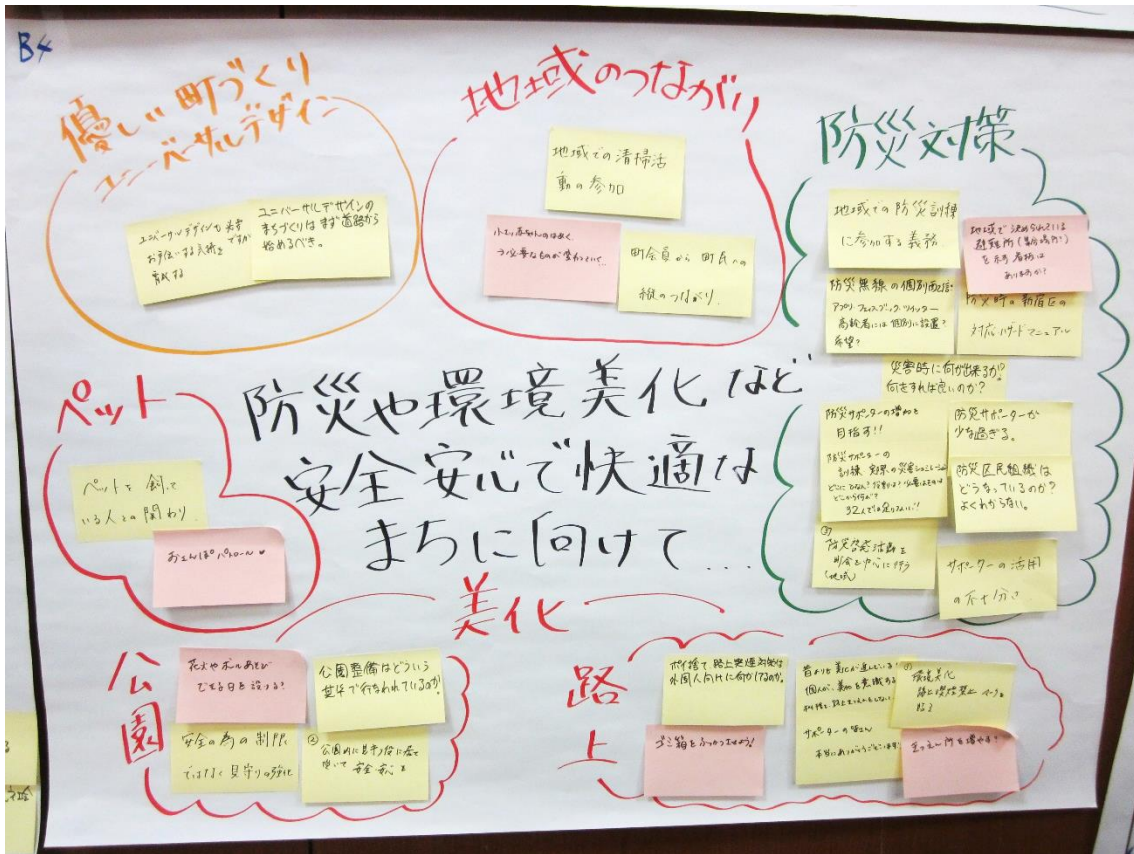 B4
優しい町づくり
ユニバーサルデザイン
ユニバーサルデザインも大事ですが
お手伝いする人材を
育成する
ユニバーサルデザインの
まちづくりはまず道路から
始めるべき。
地域のつながり
地域での清掃活
動の参加
町会員から町民への
縦のつながり
防災対策
地域での防災訓練
に参加する義務
地域で決められている
避難所(集合場所)
を示す看板は
ありますか?
防災無線の個別配信
アプリ フェイスブック、ツイッター
高齢者には個別に設置?
希望?
防災時の新宿区の
対応ハザードマニュアル
災害時に何が出来るか?
何をすれば良いのか?
防災サポーターの増加を
目指す!!
防災サポーターの
32人では足りない!!
防災サポーターが
少な過ぎる。
防災区民組織は
どうなっているのか?
よくわからない。
③
防災啓発活動を
町会を中心に行う
(地域)
サポーターの活用
の不十分さ
ペット
ペットを飼って
いる人との関わり
おさんぽパトロール
防災や環境美化など
安全安心で快適な
まちに向けて...
美化
公園
花火やボールあそび
できる日を設ける?
公園整備はどういう
基準で行なわれているのか。
安全の為の制限
ではなく見守りの強化
②
路上
ポイ捨て、路上喫煙対策は
外国人向けに何かしてるのか。
ゴミ箱をふっかつさせよう!
昔よりも美化が進んでいる!
個人が、美化を意識する
サポーターの皆さん
本当にありがとうございます!
①
環境美化
路上喫煙禁止
きつえん所を増やす!